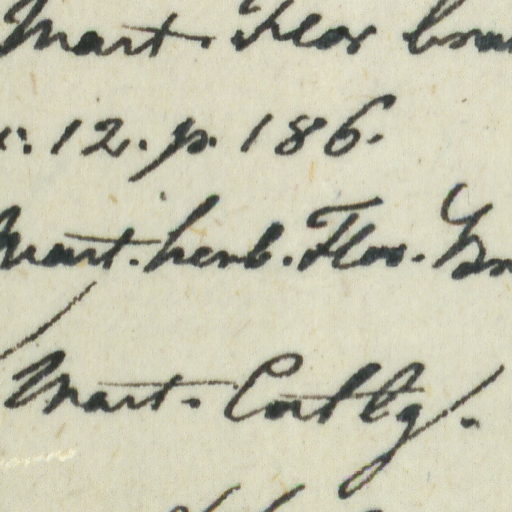 Mart. Flor bras
c. 12. p. 186.
Mart. herb. Flor. Br
Mart.